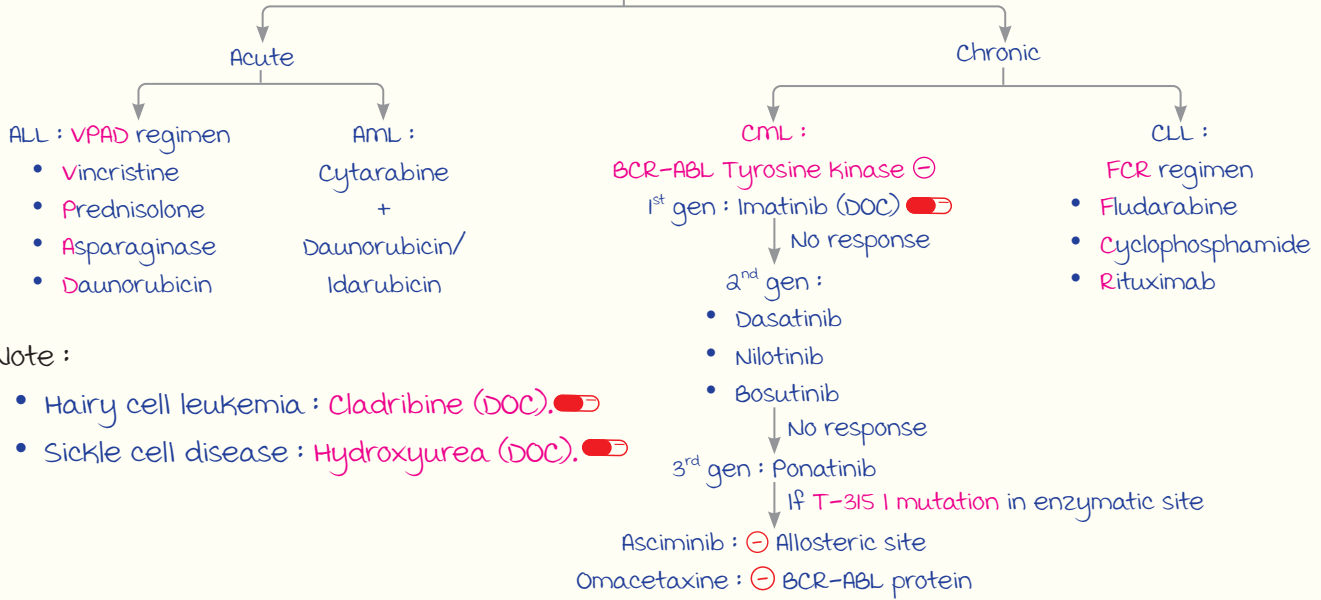 Acute
Chronic
ALL : VPAD regimen
• Vincristine
• Prednisolone
• Asparaginase
• Daunorubicin
AML :
Cytarabine
+
Daunorubicin/
Idarubicin
CML :
BCR-ABL Tyrosine Kinase ⊖
1st gen : Imatinib (DOC)
No response
2nd gen :
• Dasatinib
• Nilotinib
• Bosutinib
No response
3rd gen : Ponatinib
If T-315 I mutation in enzymatic site
Asciminib : ⊖ Allosteric site
Omacetaxine : ⊖ BCR-ABL protein
CLL :
FCR regimen
• Fludarabine
• Cyclophosphamide
• Rituximab
Note :
• Hairy cell leukemia : Cladribine (DOC).
• Sickle cell disease : Hydroxyurea (DOC).